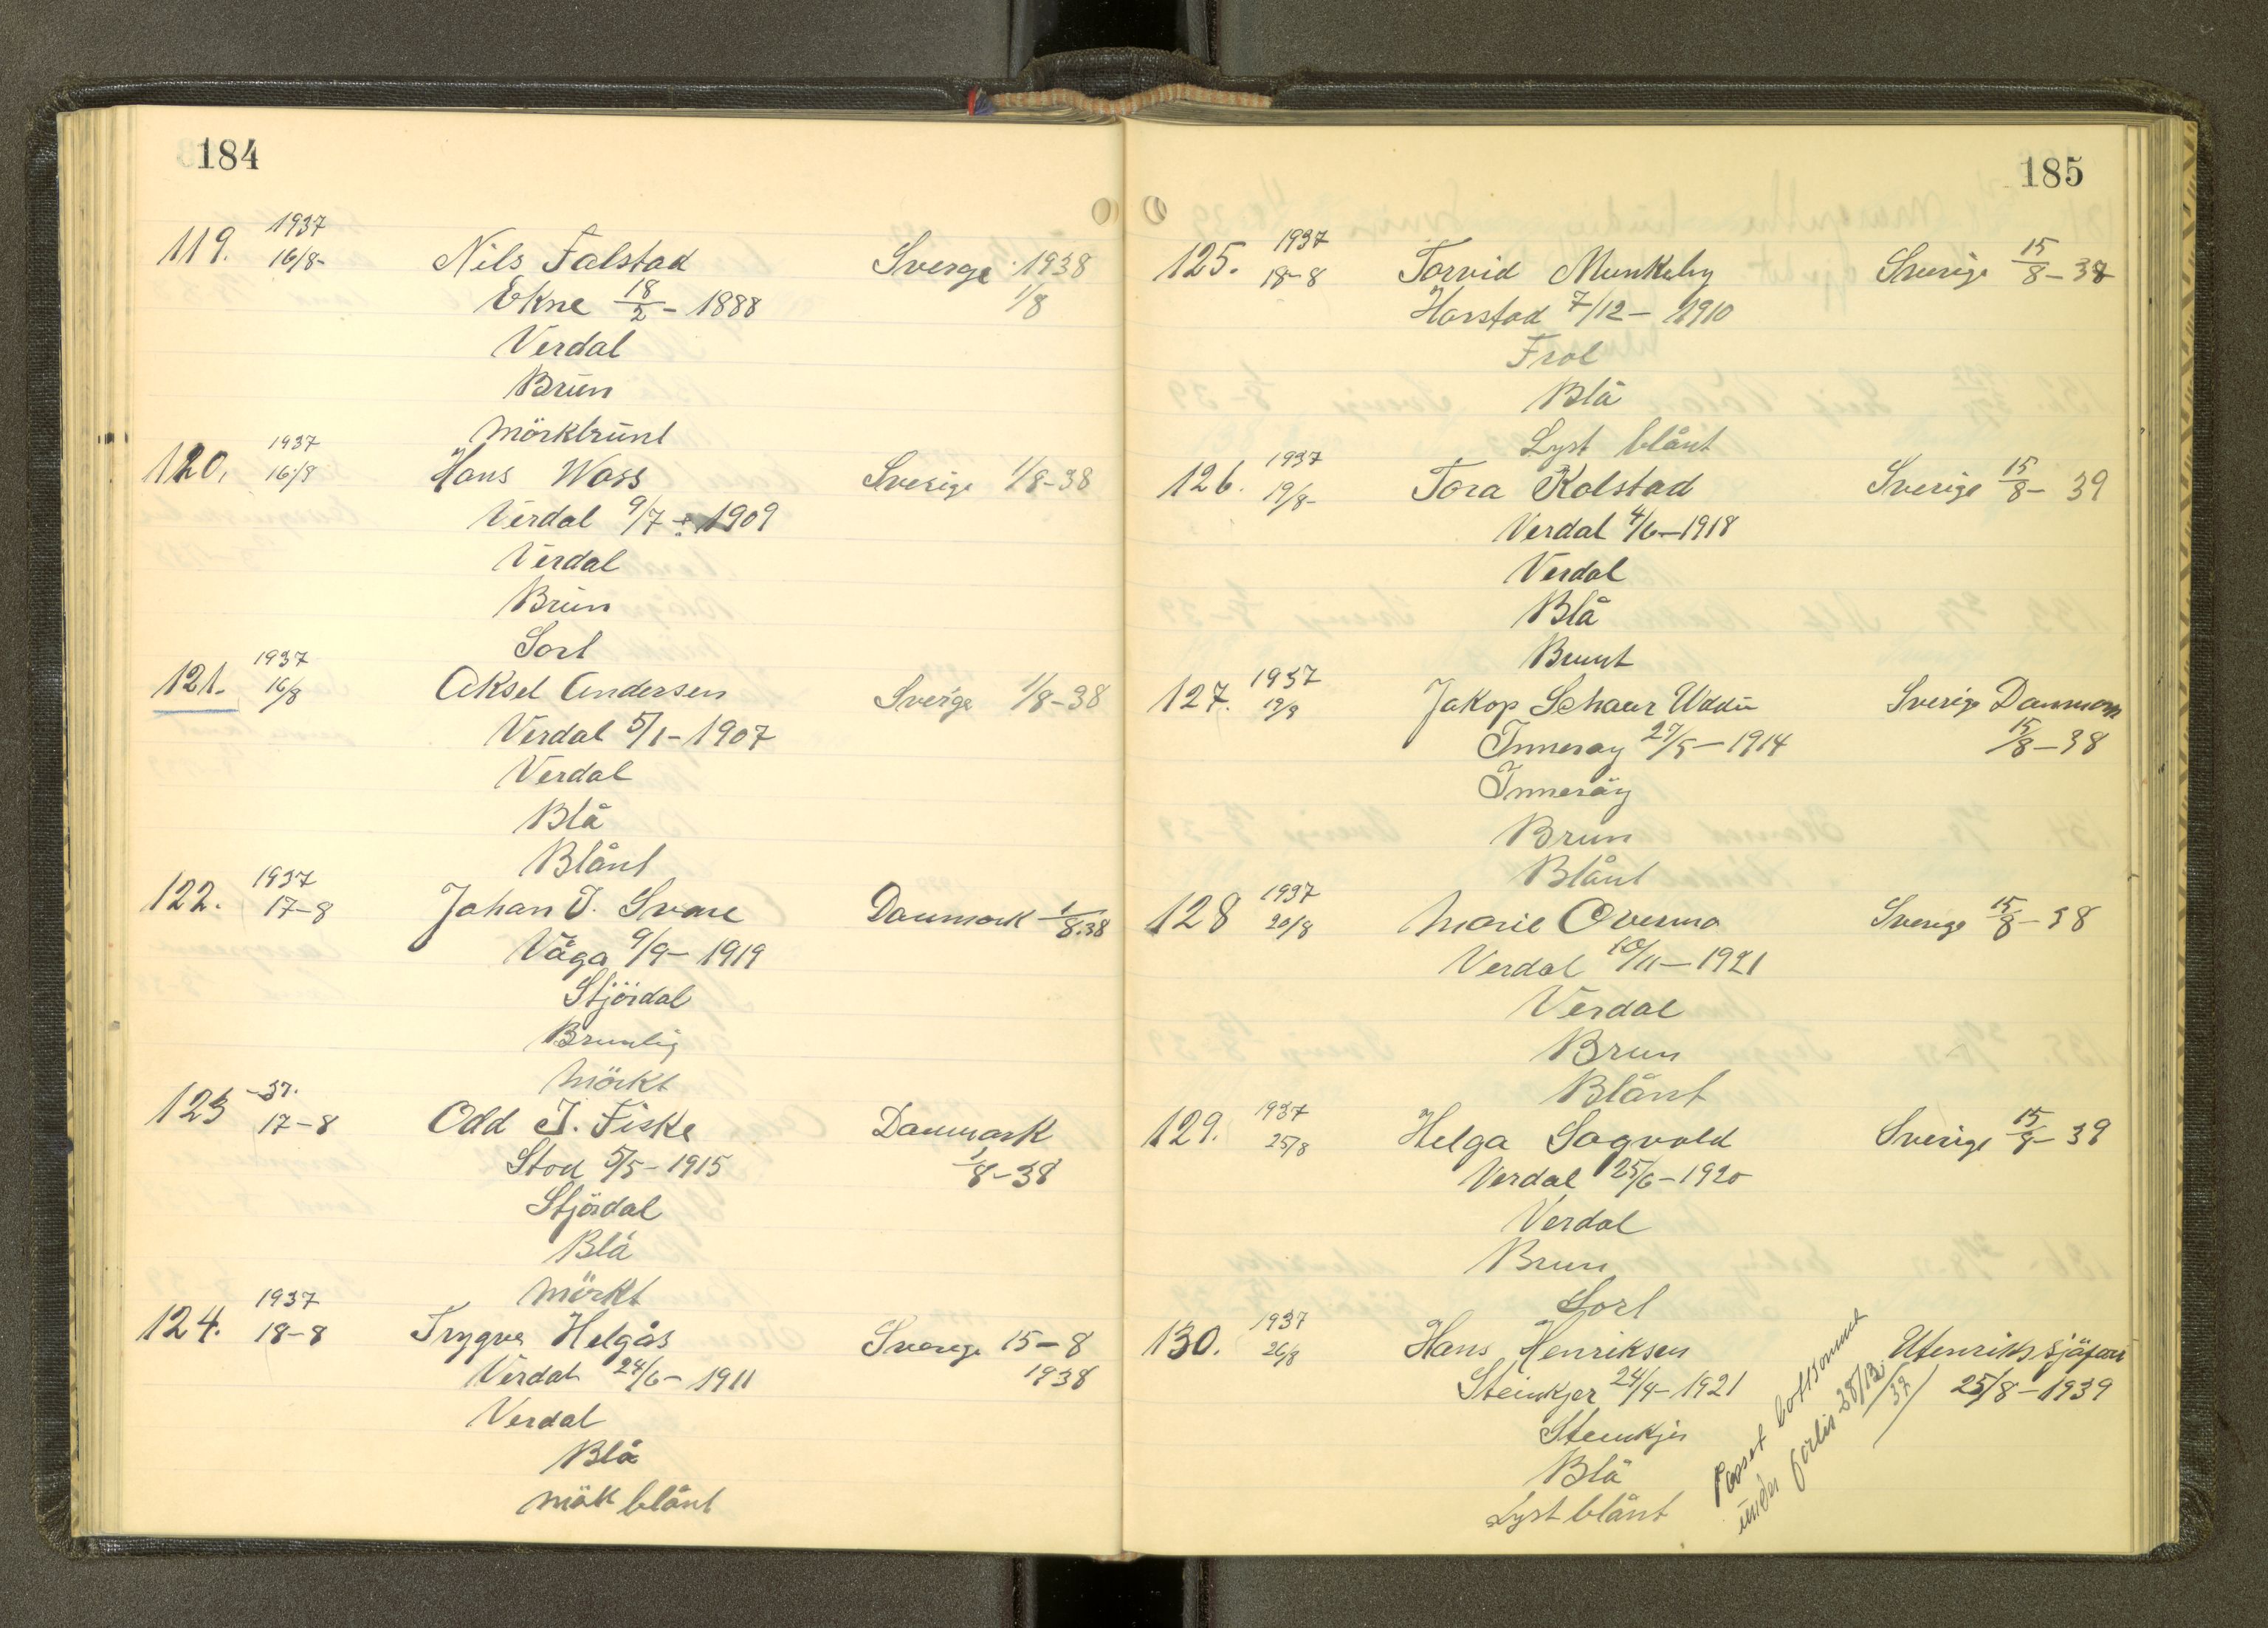 184
119. 1937 16/8- Nils Falstad Sverge 1938
Ekne 18/2 - 1888 1/8
Verdal
Brun
Mörkbrunt
120. 1937 16/8 Hans Wass Sverige 1/8-38
Verdal 9/7 - 1909
Verdal
Brun
Sort
121. 1937 16/8 Aksel Andersen Sverge 1/8-38
Verdal 5/1-1907
Verdal
Blå
Blånt
122. 1937 17-8 Johan J. Svare Danmark 1/8.38
Våga 9/9-1919
Stjördal
Brunlig
Mörkt
123 -37. 17-8 Odd J. Fiske Danmark
Stod 5/5-1915 1/8-38
Stjördal
Blå
Mörkt
124. 1937 18-8 Trygve Helgås Sverge 15-8
Verdal 24/6-1911 1938
Verdal
Blå
Mök blånt
185
125. 1937 18-8 Torvid Munkeby Sverige 15/8-38
Harstad 7/12-1910
Frol
Blå
Lyst blånt
126. 1937 19/8- Tora Kolstad Sverige 15/8-39
Verdal 4/6-1918
Verdal
Blå
Brunt
127. 1937 19/8 Jakop Schaar Uddu Sverige Danmark
Inneröy 27/5-1914 15/8-38
Inneröy
Brun
Blånt
128 1937 20/8 Marie Overmo Sverige 15/8-38
Verdal 10/11-1921
Verdal
Brun
Blånt
129. 1937 25/8 Helga Sagvold Sverige 15/8-39
Verdal 25/6-1920
Verdal
Brun
Sort
130. 1937 26/8 Hans Henriksen Utenriks sjäfart
Steinkjer 24/4-1921 25/8-1939
Steinkjer
Blå
Lyst blånt
Passet bortkommet
under forlis 28/12 37